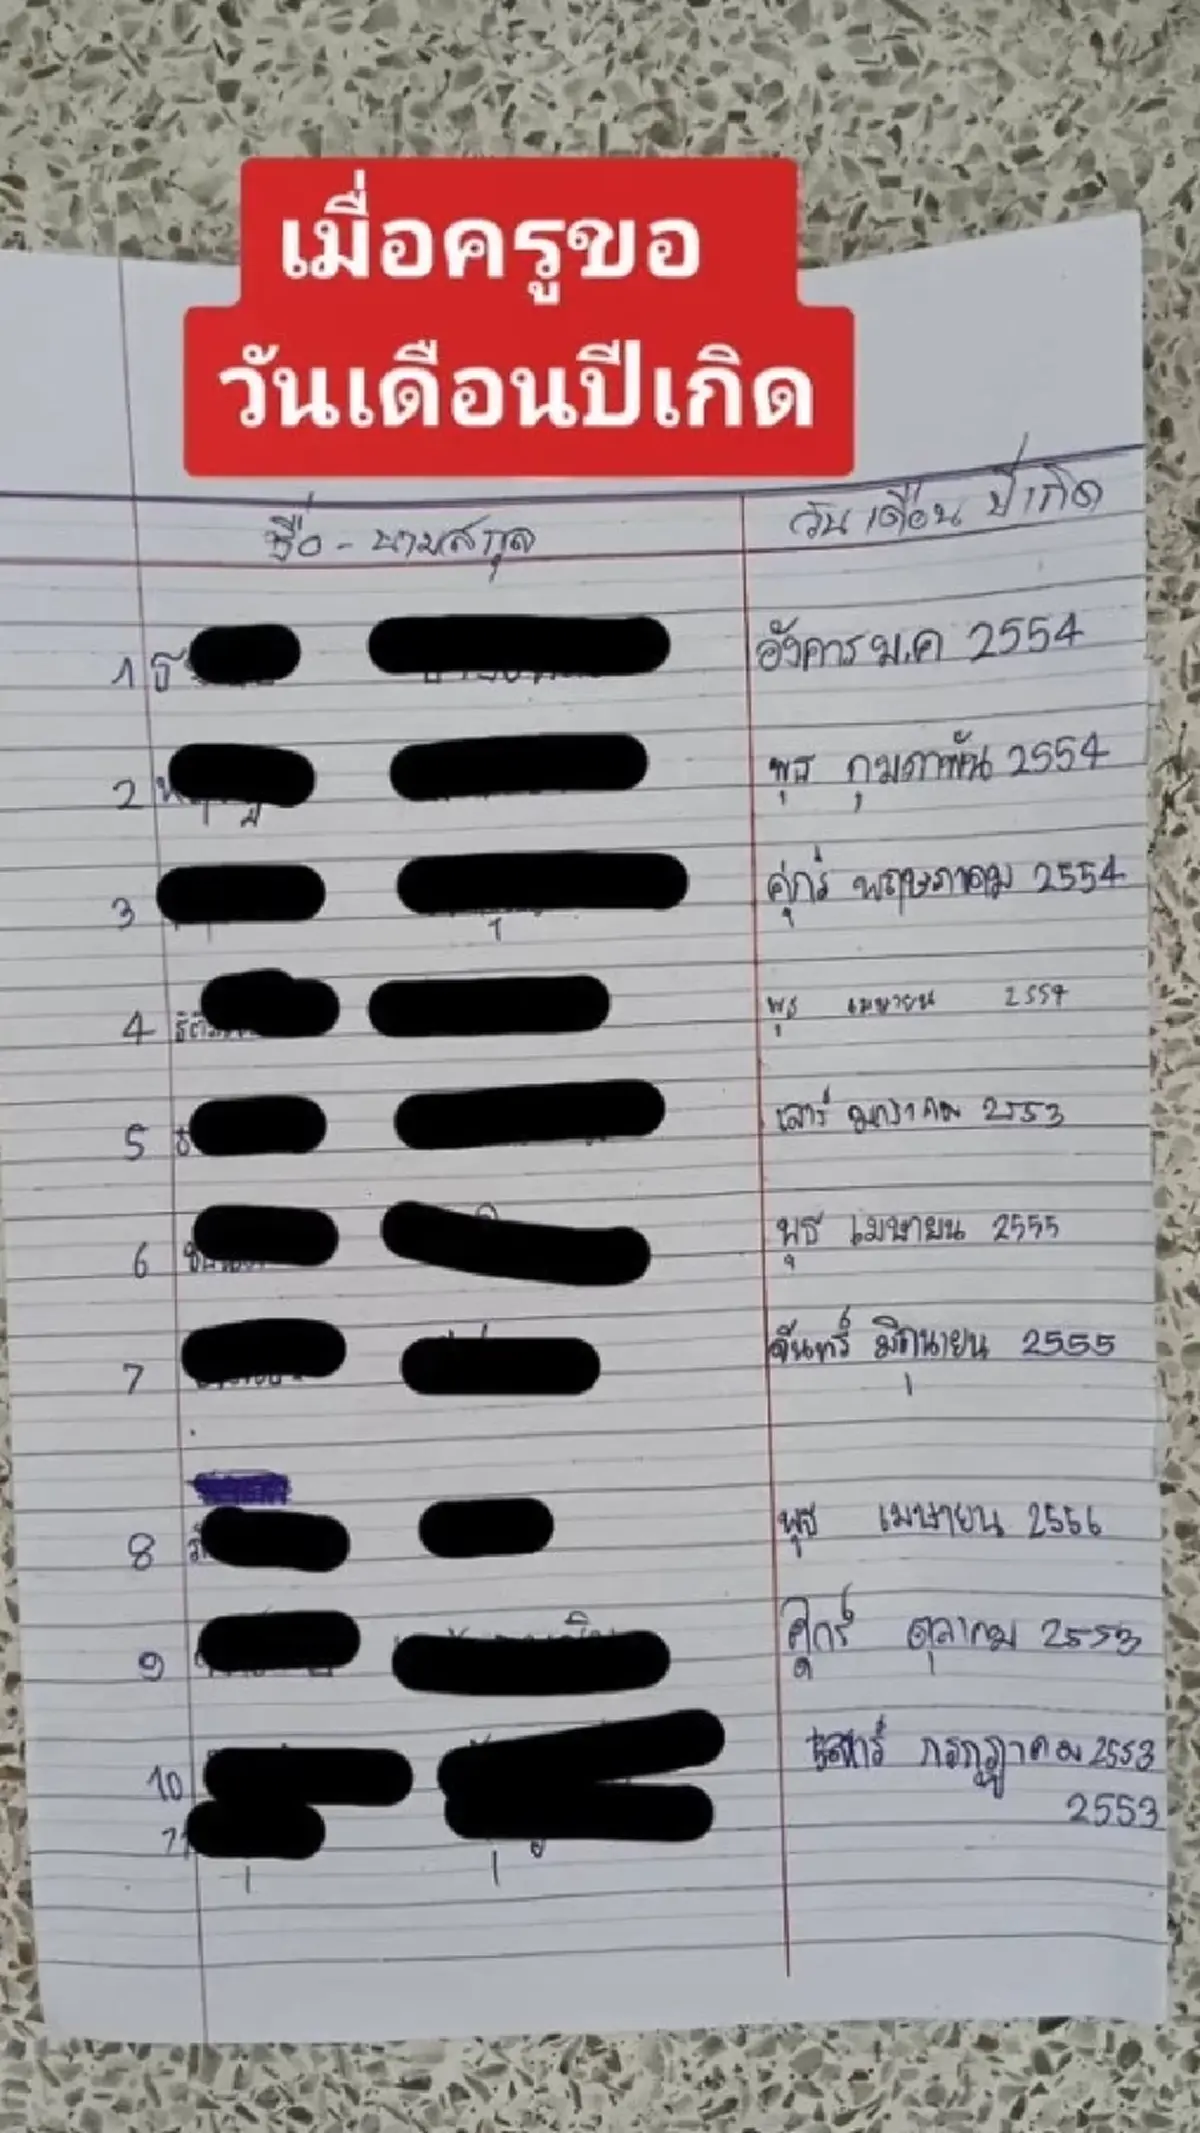 เมื่อครูขอ
วันเดือนปีเกิด
ชื่อ - นามสกุล วัน เดือน ปีเกิด
1 ธ อังคาร ม.ค 2554
2 พุธ กุมภาพัน 2554
3 ศุกร์ พฤษภาคม 2554
4 พุธ เมษายน 2554
5 เสาร์ มกราคม 2553
6 พุธ เมษายน 2555
7 จันทร์ มิถุนายน 2555
8 พุธ เมษายน 2556
9 ศุกร์ ตุลาคม 2553
10 เสาร์ กรกฎาคม 2553
11 2553